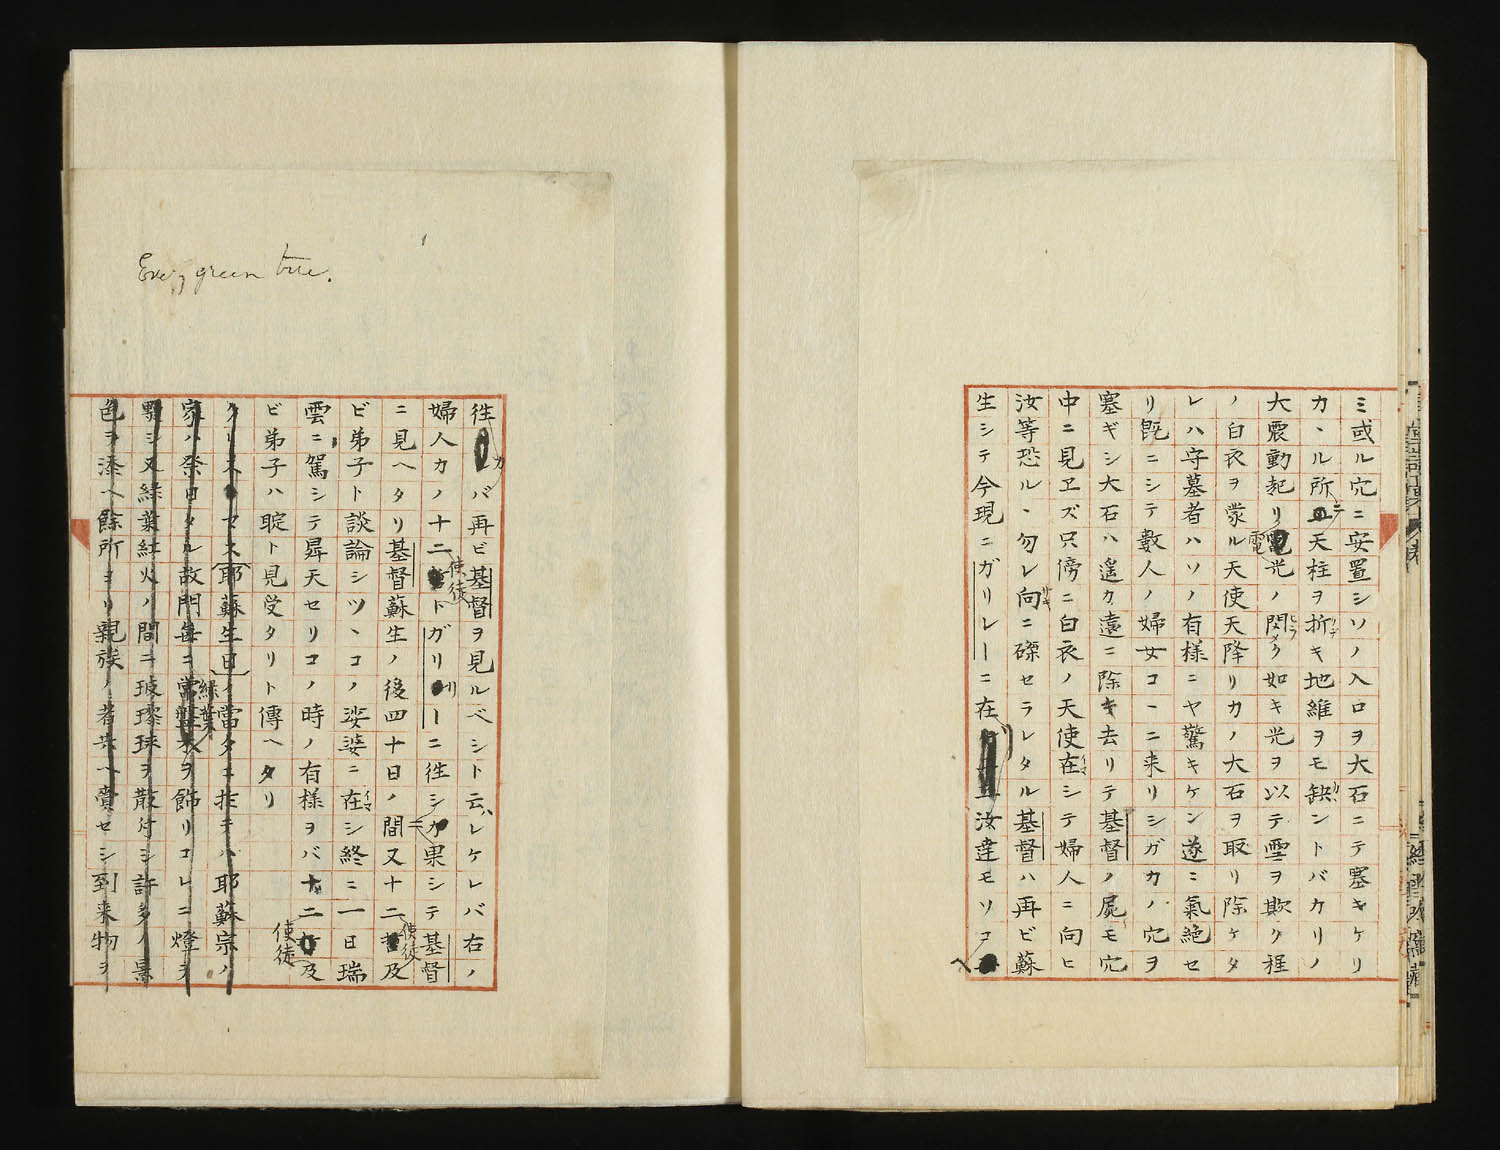 ミ或ル穴ニ安置シソノ入口ヲ大石ニテ塞キケリ
カヽル所ニテ天柱ヲ折キ地維ヲモ缺ントバカリノ
大震動起リ電光ノ閃ク如キ光ヲ以テ雪ヲ欺ク程
ノ白衣ヲ蒙ル天使天降リカノ大石ヲ取リ除ケタ
レハ守墓者ハソノ有様ニヤ驚キケン遂ニ氣絶セ
リ既ニシテ數人ノ婦女コヽニ来リシガカノ穴ヲ
塞ギシ大石ハ遙カ遠ニ除キ去リテ基督ノ屍モ穴
中ニ見ヱズ只傍ニ白衣ノ天使在シテ婦人ニ向ヒ
汝等恐ルヽ勿レ向ニ磔セラレタル基督ハ再ビ蘇
生シテ今現ニガリレーニ在 汝達モソコヘ
Evergreen tree.
徃カバ再ビ基督ヲ見ルベシト云レケレバ右ノ
婦人カノ十二使徒トガリリーニ徃シニ果シテ基督
ニ見ヘタリ基督蘇生ノ後四十日ノ間又十二使徒及
ビ弟子ト談論シツヽコノ娑婆ニ在シ終ニ一日瑞
雲ニ駕シテ昇天セリコノ時ノ有様ヲバ十二使徒及
ビ弟子ハ聢ト見受タリト傳ヘタリ
クリスマス耶蘇生日ノ當タニ於テハ耶蘇宗ハ
家ハ祭日タル故門毎ニ常盤木緑葉ヲ飾リコレニ燈ヲ
點シ又緑葉紅火ノ間ニ玻瓈球ヲ散付シ許多ノ景
色ヲ添ヘ餘所ヨリ親族ノ者共ヘ賚セシ到来物ヲ